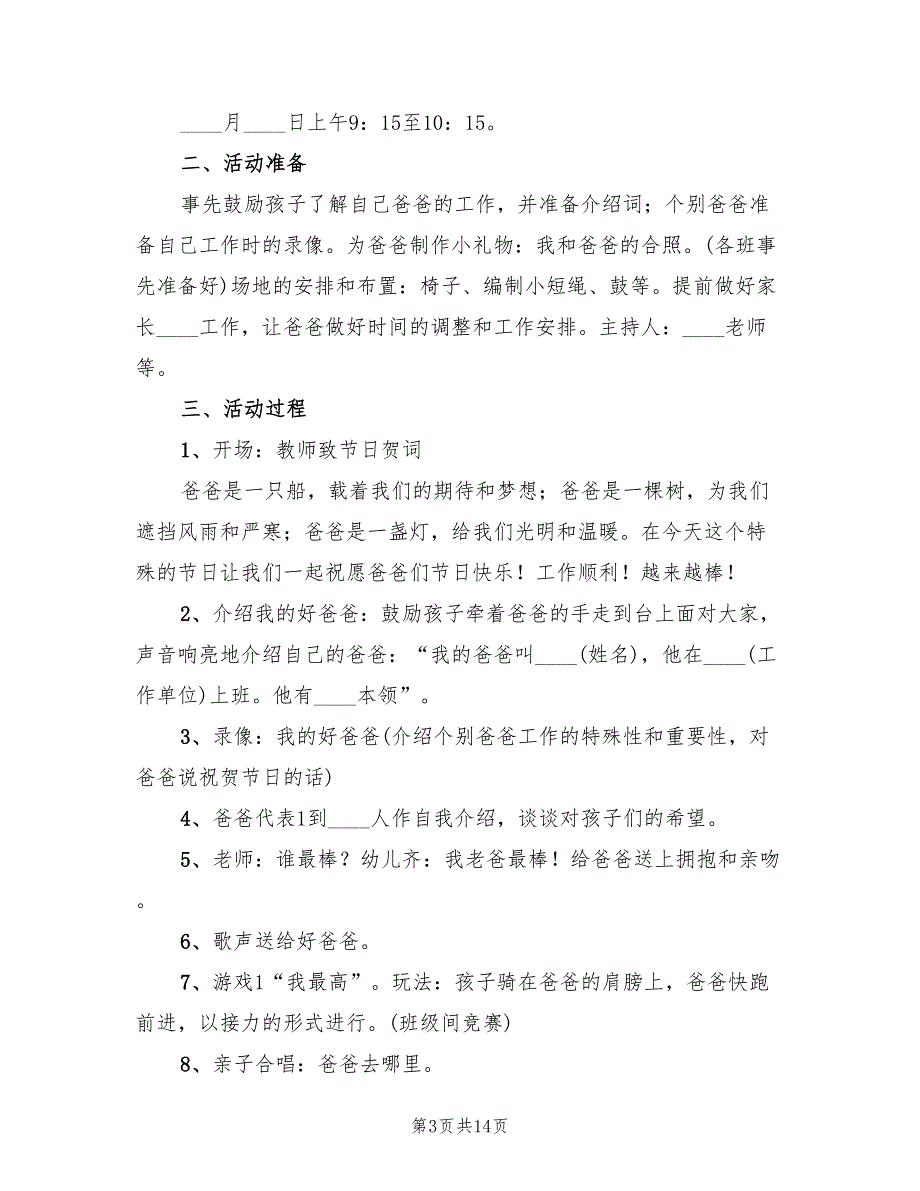 ____月____日上午9：15至10：15。
二、活动准备
事先鼓励孩子了解自己爸爸的工作，并准备介绍词；个别爸爸准
备自己工作时的录像。为爸爸制作小礼物：我和爸爸的合照。(各班事
先准备好)场地的安排和布置：椅子、编制小短绳、鼓等。提前做好家
长____工作，让爸爸做好时间的调整和工作安排。主持人：____老师
等。
三、活动过程
1、开场：教师致节日贺词
爸爸是一只船，载着我们的期待和梦想；爸爸是一棵树，为我们
遮挡风雨和严寒；爸爸是一盏灯，给我们光明和温暖。在今天这个特
殊的节日让我们一起祝愿爸爸们节日快乐！工作顺利！越来越棒！
2、介绍我的好爸爸：鼓励孩子牵着爸爸的手走到台上面对大家，
声音响亮地介绍自己的爸爸：“我的爸爸叫____(姓名)，他在____(工
作单位)上班。他有____本领”。
3、录像：我的好爸爸(介绍个别爸爸工作的特殊性和重要性，对
爸爸说祝贺节日的话)
4、爸爸代表1到____人作自我介绍，谈谈对孩子们的希望。
5、老师：谁最棒？幼儿齐：我老爸最棒！给爸爸送上拥抱和亲吻
。
6、歌声送给好爸爸。
7、游戏1“我最高”。玩法：孩子骑在爸爸的肩膀上，爸爸快跑
前进，以接力的形式进行。(班级间竞赛)
8、亲子合唱：爸爸去哪里。
第3页共14页